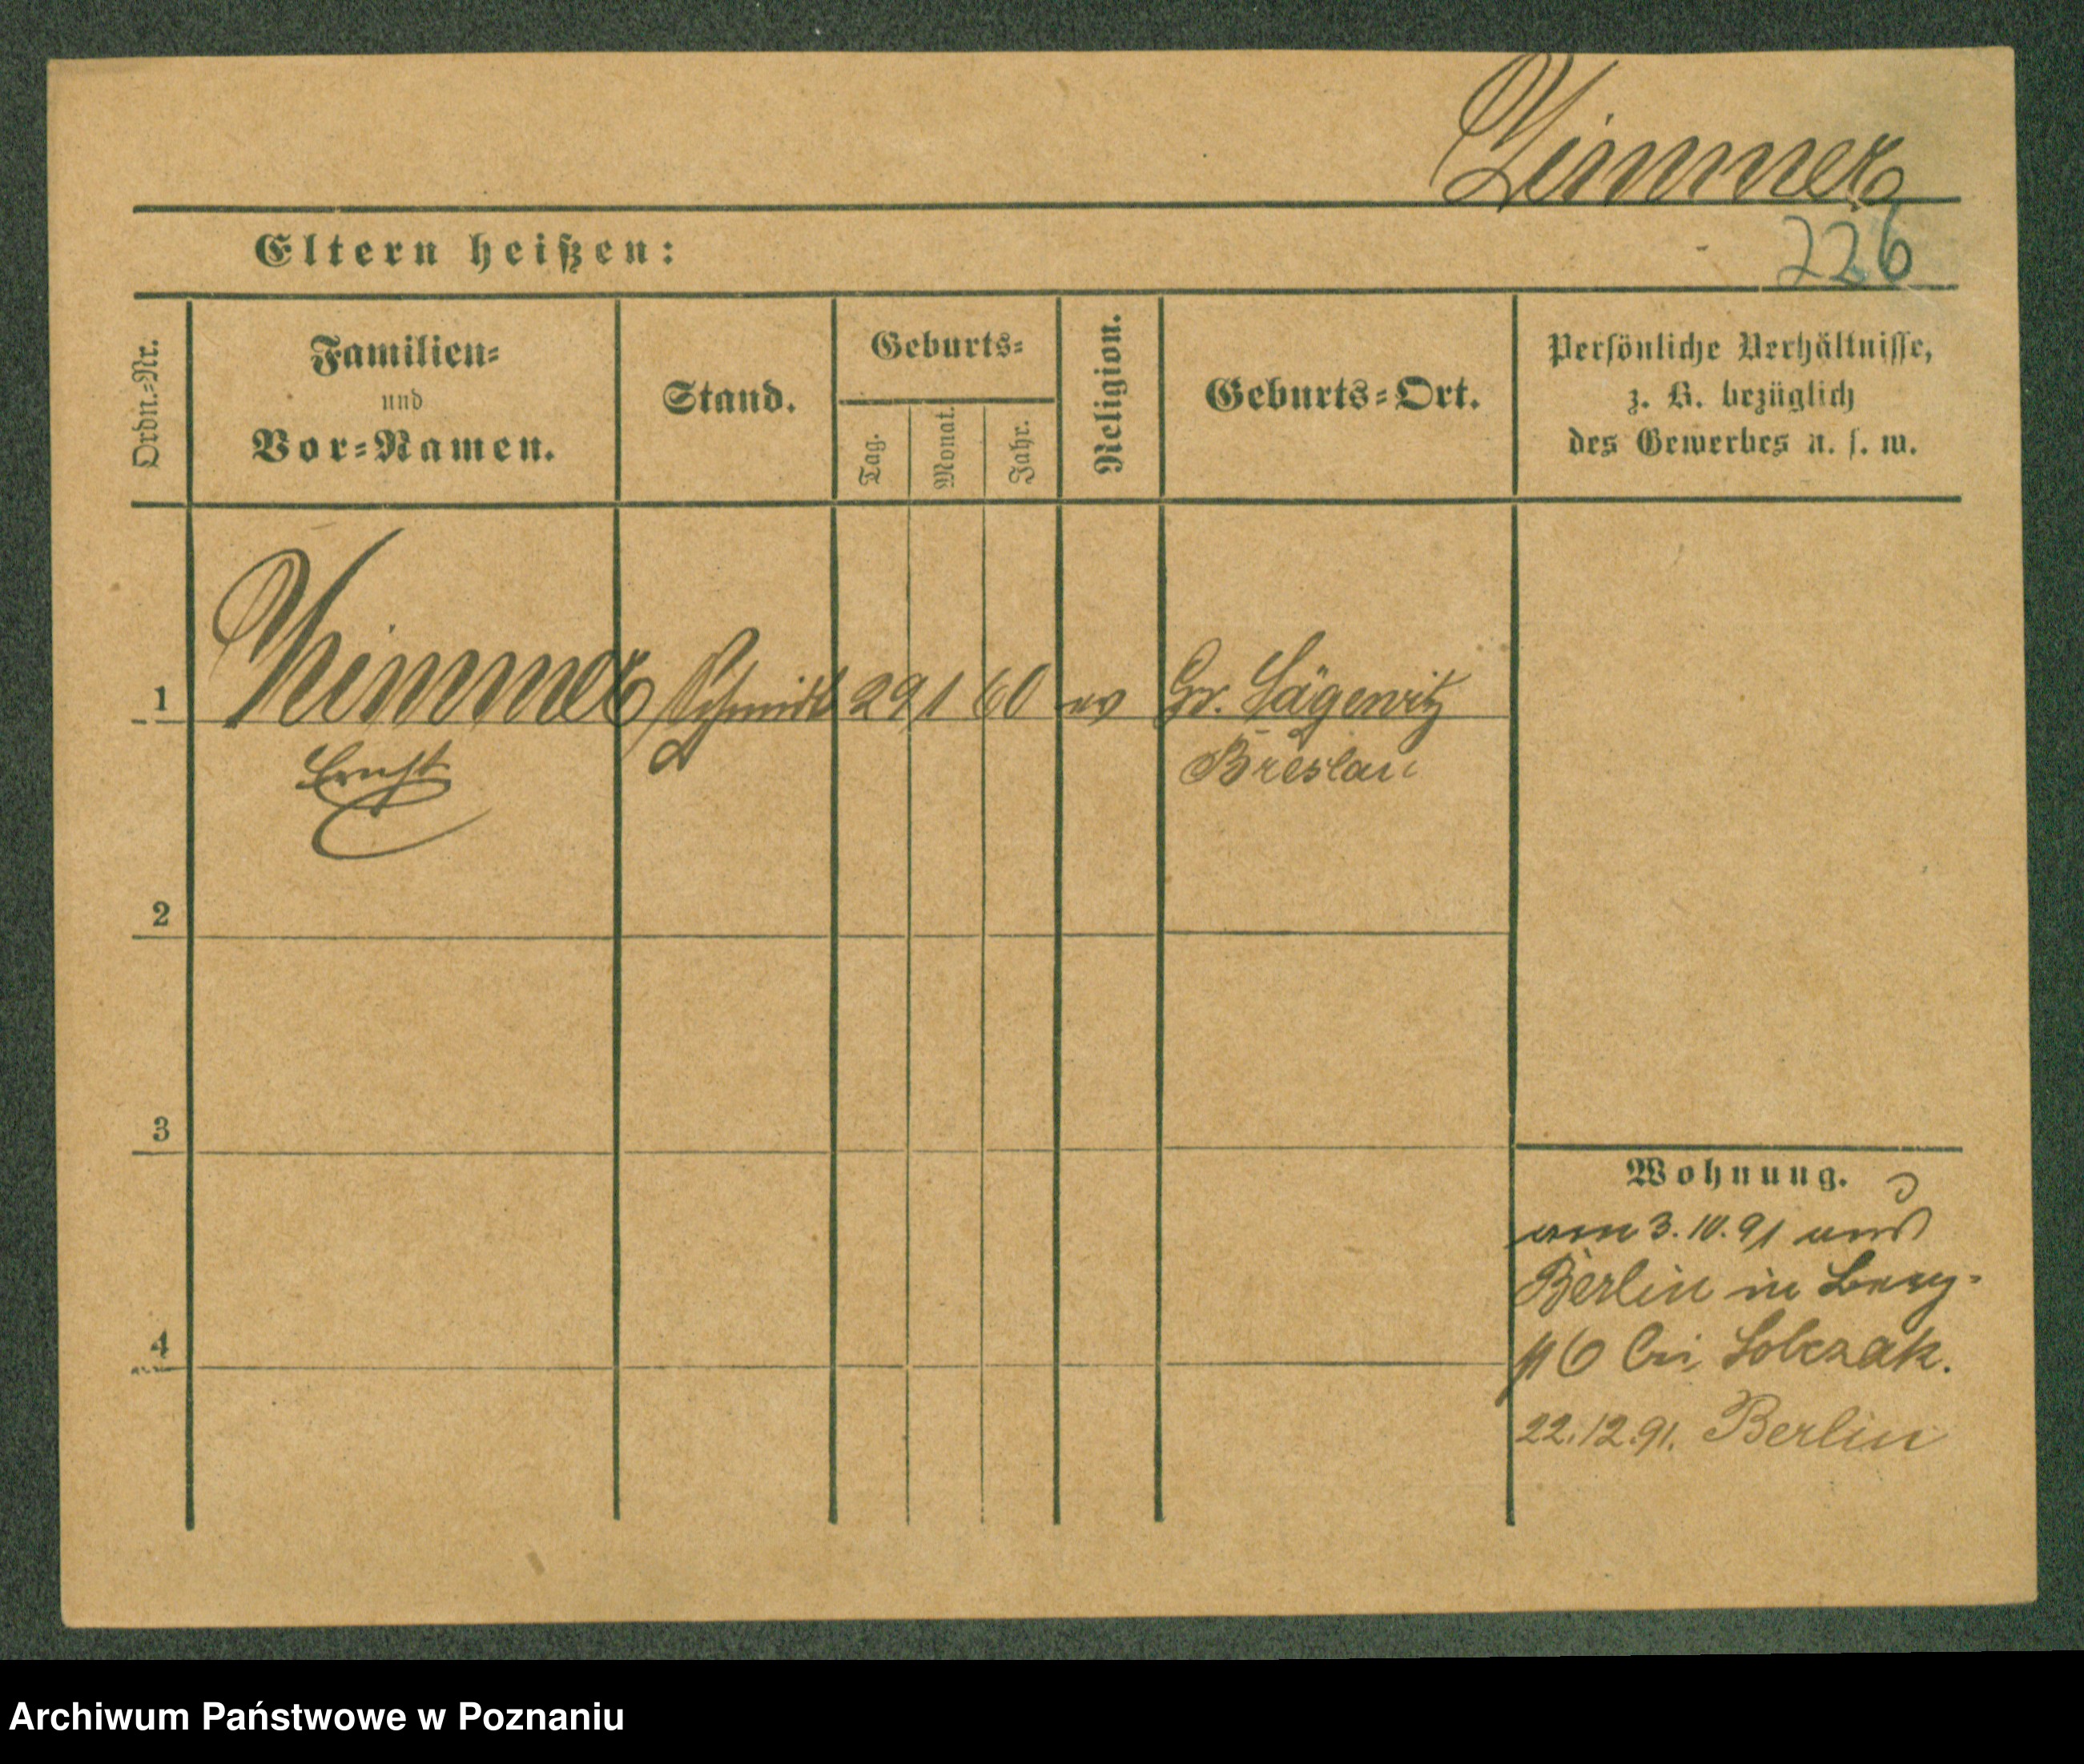 Zimmer
226
Eltern heißen:
Ordn.-Nr.
Familien-
und
Vor-Namen.
Stand.
Geburts-
Tag.
Monat.
Jahr.
Religion.
Geburts-Ort.
Persönliche Verhältnisse,
z. B. bezüglich
des Gewerbes u. s. w.
1 Zimmer Schmidt 29 1 60 ev Gr. Sägewitz
Ernst Breslau
2
3
4
Wohnung.
am 3. 10. 91 aus
Berlin in Berg-
16 bei Sobczak.
22.12.91. Berlin
Archiwum Państwowe w Poznaniu